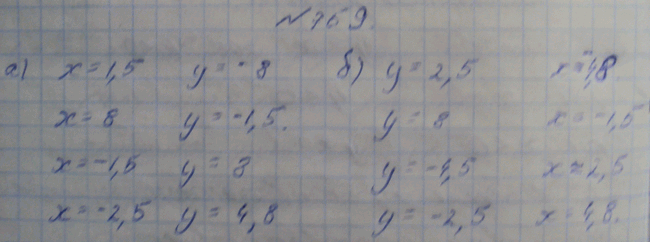 № 759.
а) x = 1,5 y = -8 б) y = 2,5 x = -4,8
x = 8 y = -1,5. y = 8 x = -1,5
x = -1,5 y = 8 y = -4,5 x = 2,5
x = -2,5 y = 4,8 y = -2,5 x = 4,8.